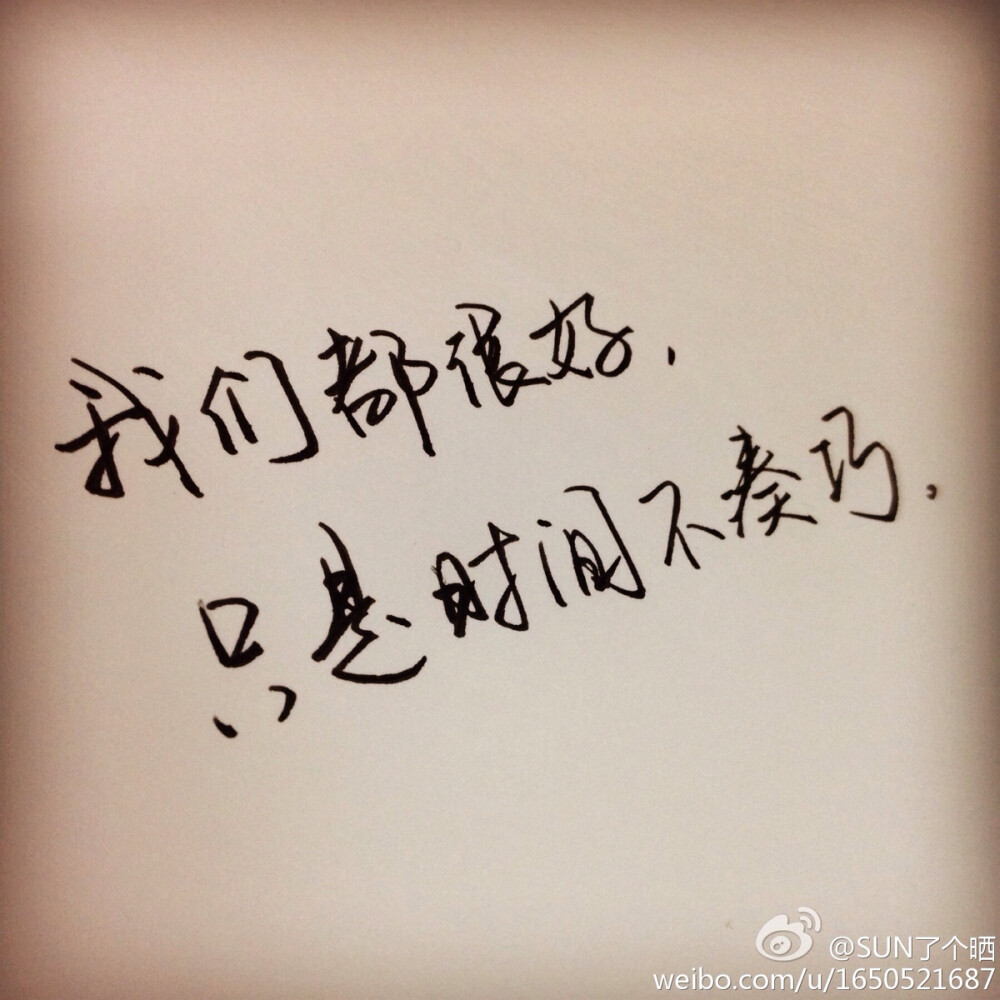 我们都很好.
只是时间不凑巧.
@SUN了个晒
weibo.com/u/1650521687